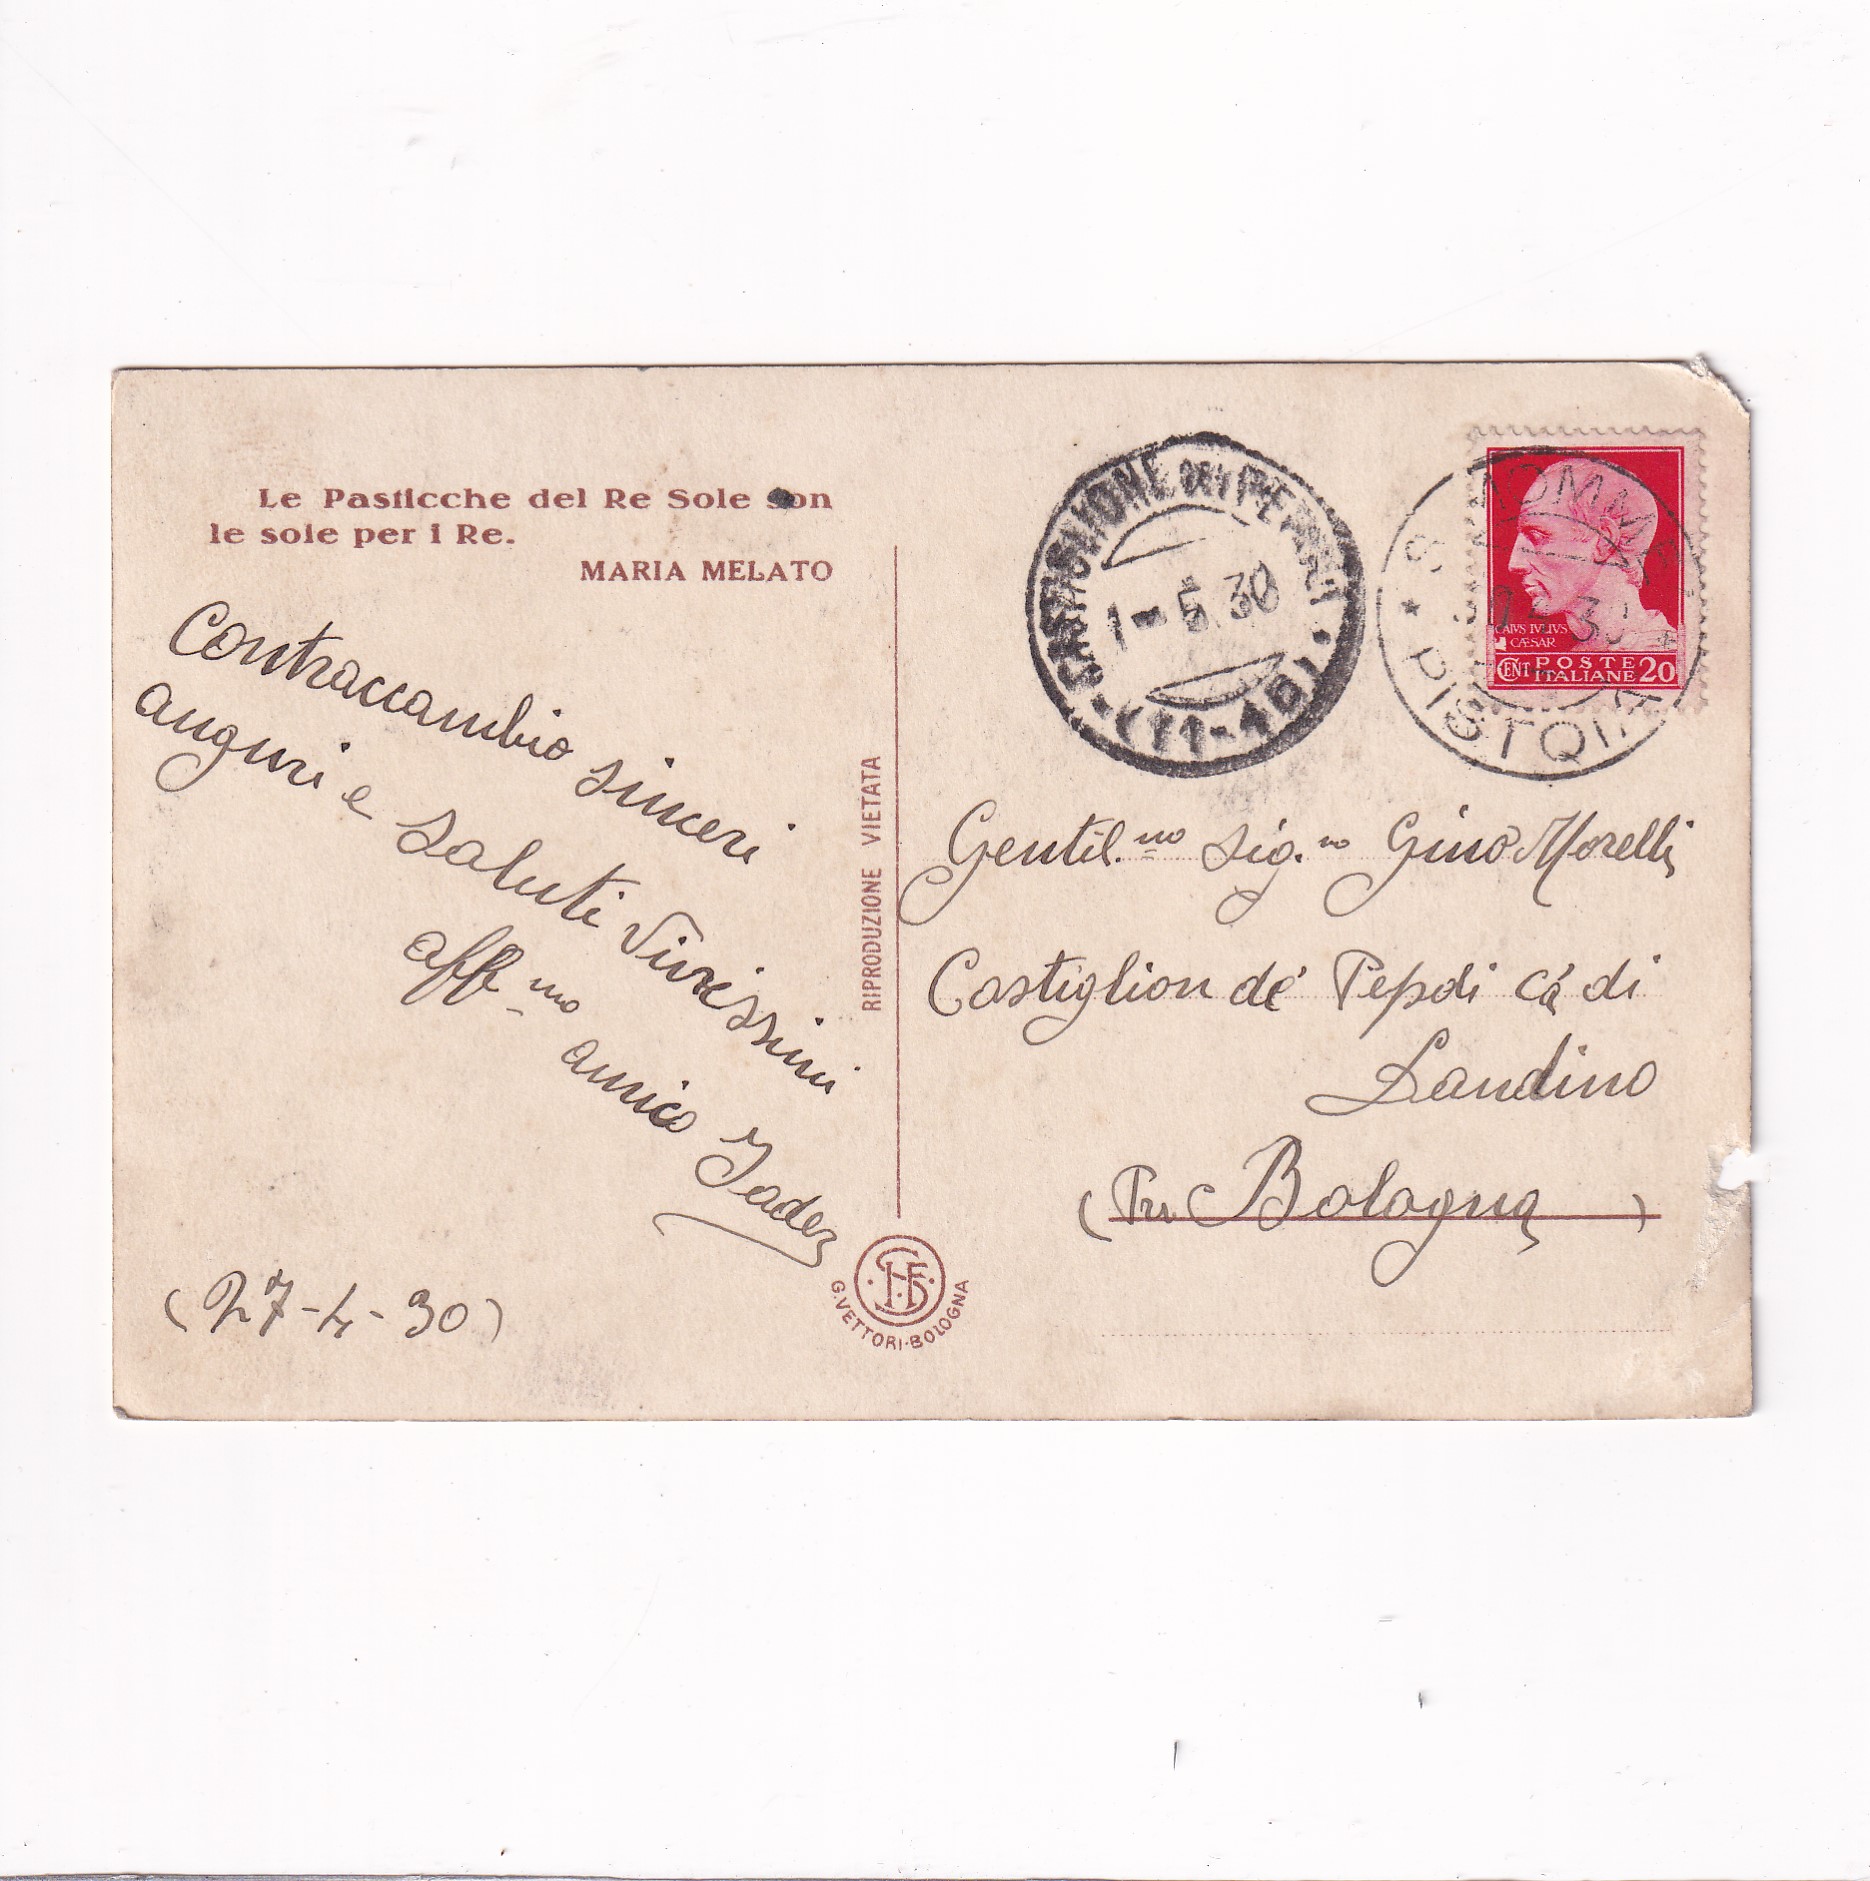 Le Pasticche del Re Sole son
le sole per i Re.
MARIA MELATO
Contraccambio sinceri
auguri e saluti vivissimi
aff.mo
amico
(27-4-30)
RIPRODUZIONE VIETATA
G. VETTORI · BOLOGNA
CASTIGLIONE DEI PEPOLI
1-5.30
S. MOMME
PISTOIA
CAIVS IVLIVS
CÆSAR
CENT POSTE ITALIANE 20
Gentil.mo Sig.no Gino Morelli
Castiglion dé Pepoli Cá di
Landino
(Pr. Bologna)